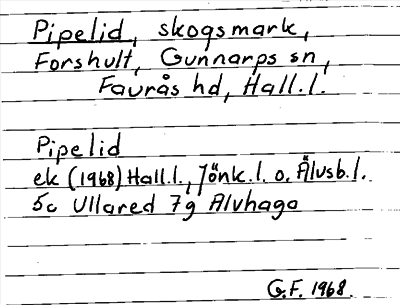 Pipelid, skogsmark,
Forshult, Gunnarps sn,
Faurås hd, Hall.l.
Pipelid
ek (1968) Hall.l., Jönk.l. o. Älvsb.l.
5c Ullared 7g Alvhaga
G.F. 1968.